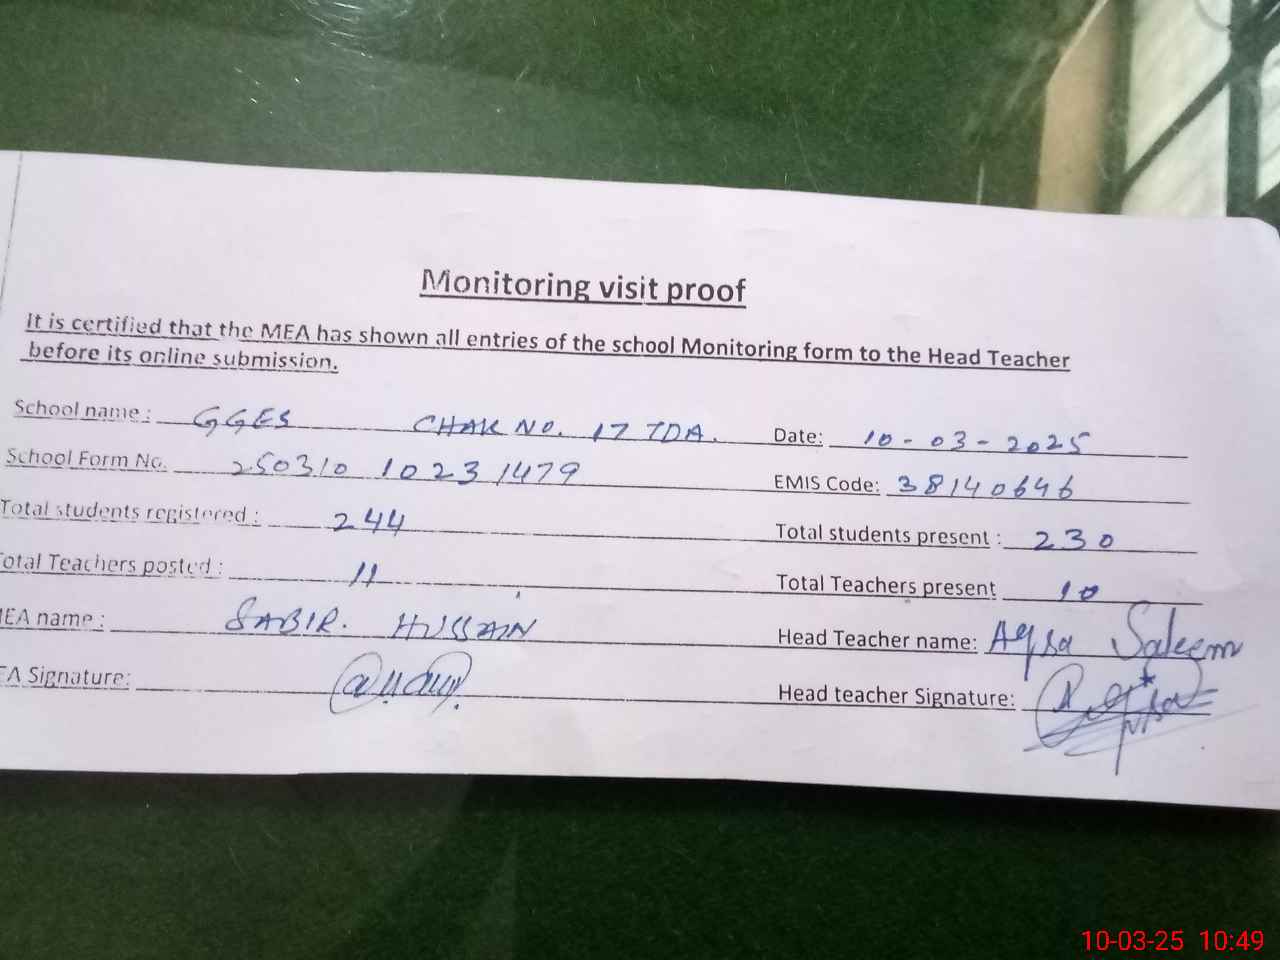 Monitoring visit proof
It is certified that the MEA has shown all entries of the school Monitoring form to the Head Teacher
before its online submission.
School name : GGES CHAK NO. 17 TDA. Date: 10-03-2025
School Form No. 250310 10231479 EMIS Code: 38140646
Total students registered : 244 Total students present : 230
otal Teachers posted : 11 Total Teachers present 10
EA name : SABIR. HUSSAIN Head Teacher name: Aqsa Saleem
EA Signature: Head teacher Signature:
10-03-25 10:49